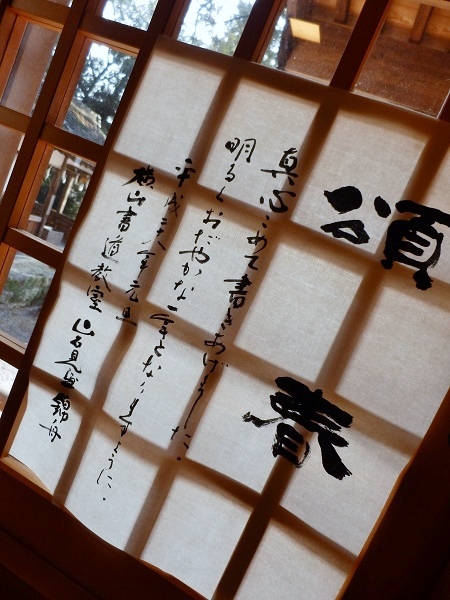 頌春
真心こめて書きあげました。
明るくおだやかな一年となりますように。
平成二十八年元旦
横山書道教室 山名見風錦舟